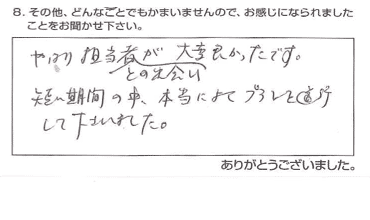 8. その他、どんなことでもかまいませんので、お感じになられました
ことをお聞かせ下さい。
やはり担当者が大変良かったです。
との出会い
短い期間の中、本当によくプランと
して下さいました。
ありがとうございました。